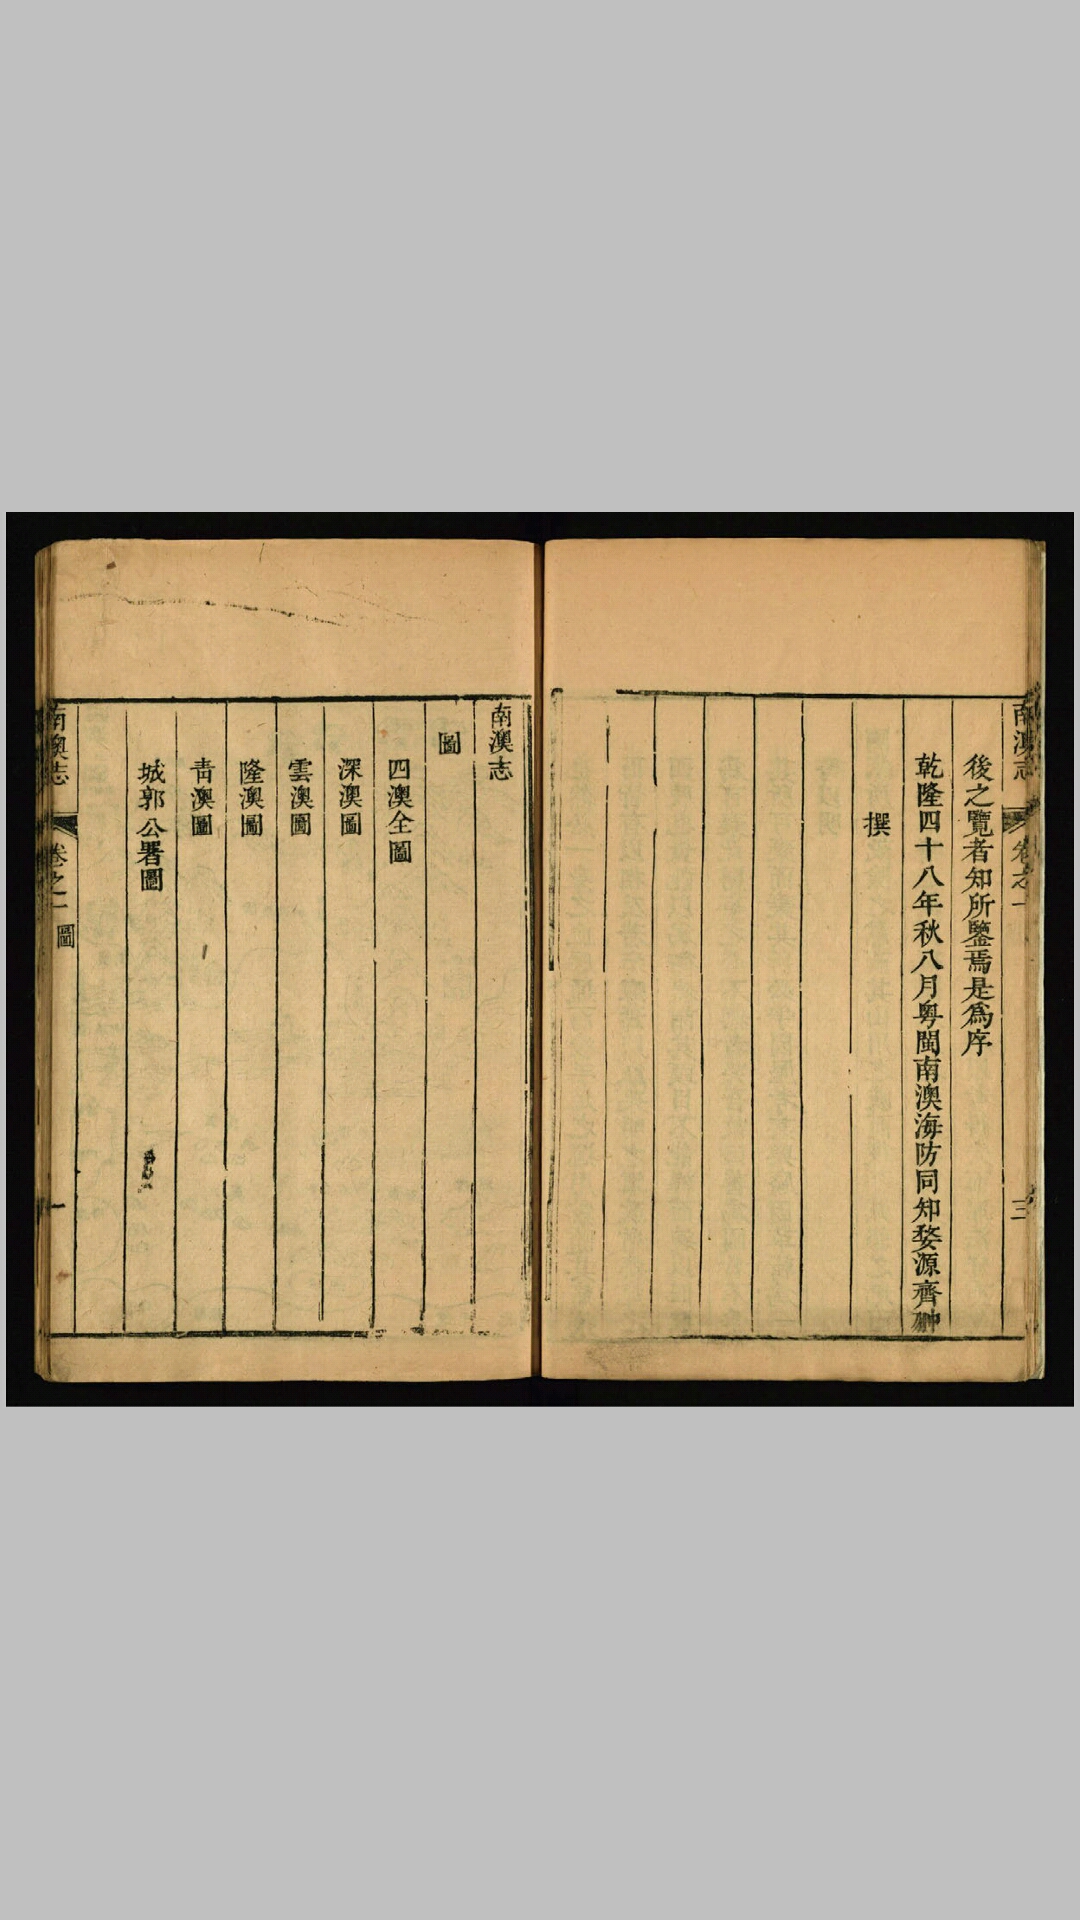 南澳志
卷之一
三
後之覽者知所鑒焉是爲序
乾隆四十八年秋八月粵閩南澳海防同知婺源齊翀
撰
南澳志
圖
四澳全圖
深澳圖
雲澳圖
隆澳圖
青澳圖
城郭公署圖
南澳志
卷之一
圖
一